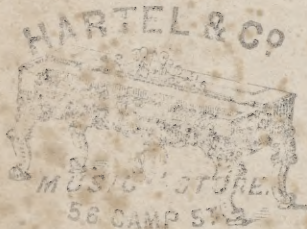 HARTEL & Co
MUSIC STORE.
56 CAMP ST.